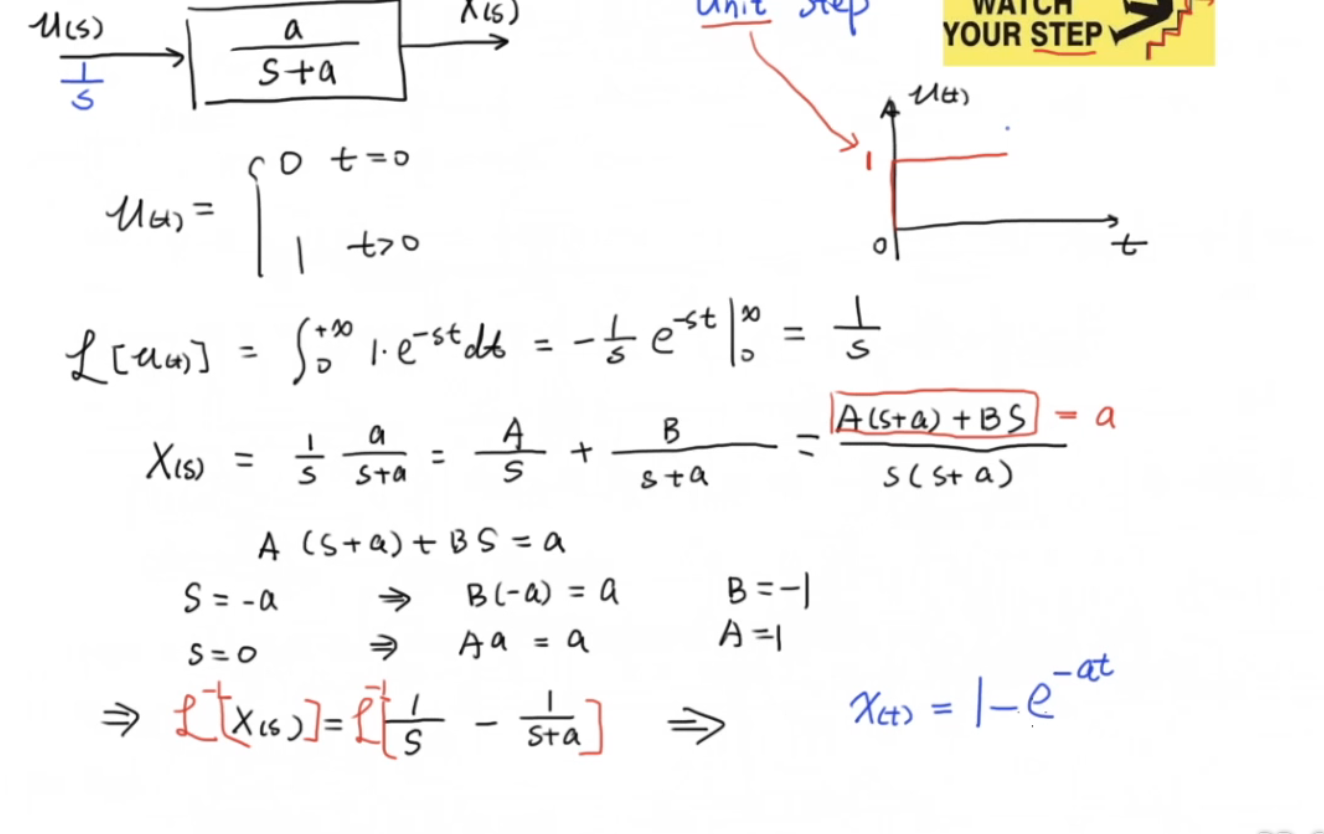 U(s) a X(s) unit step WATCH
1/s s+a YOUR STEP
u(t)
u(t) = { 0 t=0 1
1 t>0
0 t
L[u(t)] = ∫₀^{+∞} 1·e^{-st}dt = -1/s e^{-st}|₀^∞ = 1/s
X(s) = 1/s a/(s+a) = A/s + B/(s+a) = (A(s+a)+BS)/(s(s+a)) = a
A (s+a)+BS = a
S = -a ⇒ B(-a) = a B = -1
s = 0 ⇒ Aa = a A = 1
⇒ L⁻¹[X(s)] = L⁻¹[1/s - 1/(s+a)] ⇒ x(t) = 1-e^{-at}